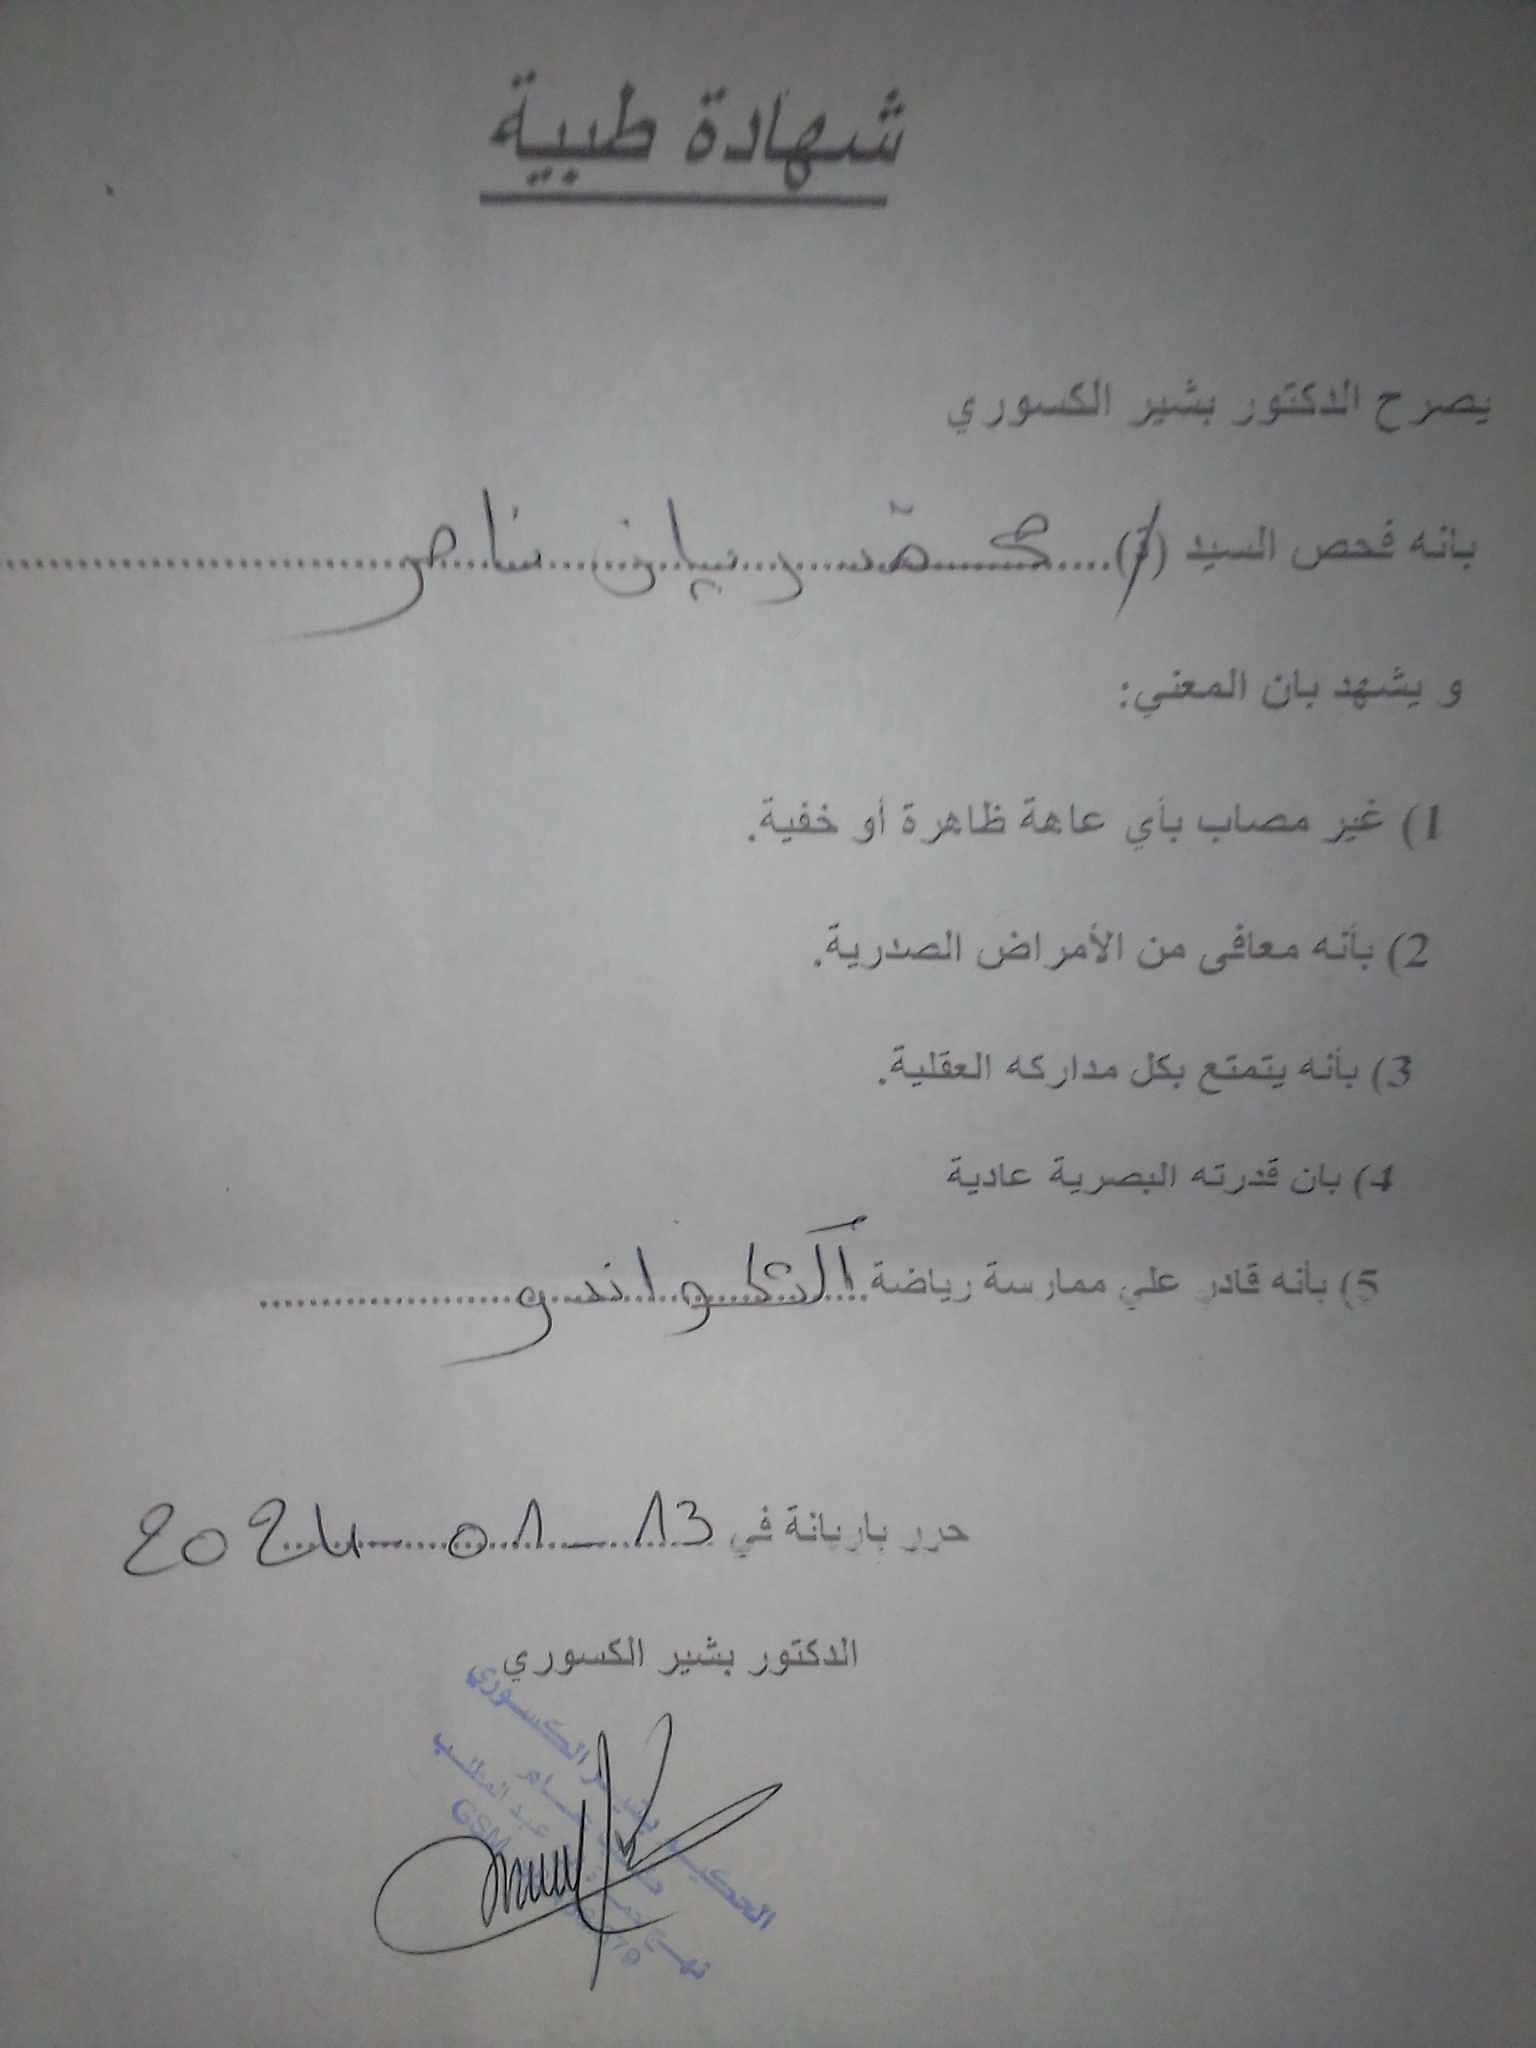 شهادة طبية
يصرح الدكتور بشير الكسوري
بانه فحص السيد (ة) ناصر
و يشهد بان المعني:
1) غير مصاب بأي عاهة ظاهرة أو خفية.
2) بأنه معافى من الأمراض الصدرية.
3) بأنه يتمتع بكل مداركه العقلية.
4) بان قدرته البصرية عادية
5) بأنه قادر علي ممارسة رياضة
حرر باريانة في 13 - 01 - 2024
الدكتور بشير الكسوري
الحكيم بشير الكسوري
عبد المطلب
GSM